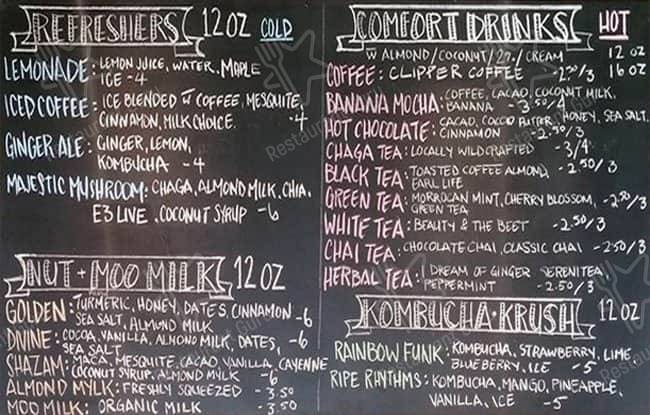 REFRESHERS 12 OZ COLD
LEMONADE: LEMON JUICE, WATER, MAPLE
ICE -4
ICED COFFEE: ICE BLENDED w COFFEE, MESQUITE,
CINNAMON, MILK CHOICE. -4
GINGER ALE: GINGER, LEMON,
KOMBUCHA -4
MAJESTIC MUSHROOM: CHAGA, ALMOND MILK, CHIA,
E3 LIVE, COCONUT SYRUP -6
NUT + MOO MILK 12 OZ
GOLDEN: TURMERIC, HONEY, DATES, CINNAMON -6
SEA SALT, ALMOND MILK
DIVINE: COCOA, VANILLA, ALMOND MILK, DATES, -6
SEA SALT
SHAZAM: MACA, MESQUITE, CACAO, VANILLA, CAYENNE
COCONUT SYRUP, ALMOND MYLK -6
ALMOND MYLK: FRESHLY SQUEEZED -3.50
MOO MILK: ORGANIC MILK -3.50
COMFORT DRINKS HOT
w ALMOND/COCONUT/2%/CREAM 12 OZ
COFFEE: CLIPPER COFFEE -2.50/3 16 OZ
BANANA MOCHA: COFFEE, CACAO, COCONUT MILK,
BANANA -3.50/4
HOT CHOCOLATE: CACAO, COCOA BUTTER, HONEY, SEA SALT,
CINNAMON -2.50/3
CHAGA TEA: LOCALLY WILDCRAFTED -3/4
BLACK TEA: TOASTED COFFEE ALMOND, -2.50/3
EARL LIFE
GREEN TEA: MORROCAN MINT, CHERRY BLOSSOM, -2.50/3
GREEN TEA
WHITE TEA: BEAUTY & THE BEET -2.50/3
CHAI TEA: CHOCOLATE CHAI, CLASSIC CHAI -2.50/3
HERBAL TEA: I DREAM OF GINGER SERENITEA,
PEPPERMINT -2.50/3
KOMBUCHA·KRUSH 12 OZ
RAINBOW FUNK: KOMBUCHA, STRAWBERRY, LIME,
BLUEBERRY, ICE -5
RIPE RHYTHMS: KOMBUCHA, MANGO, PINEAPPLE,
VANILLA, ICE -5